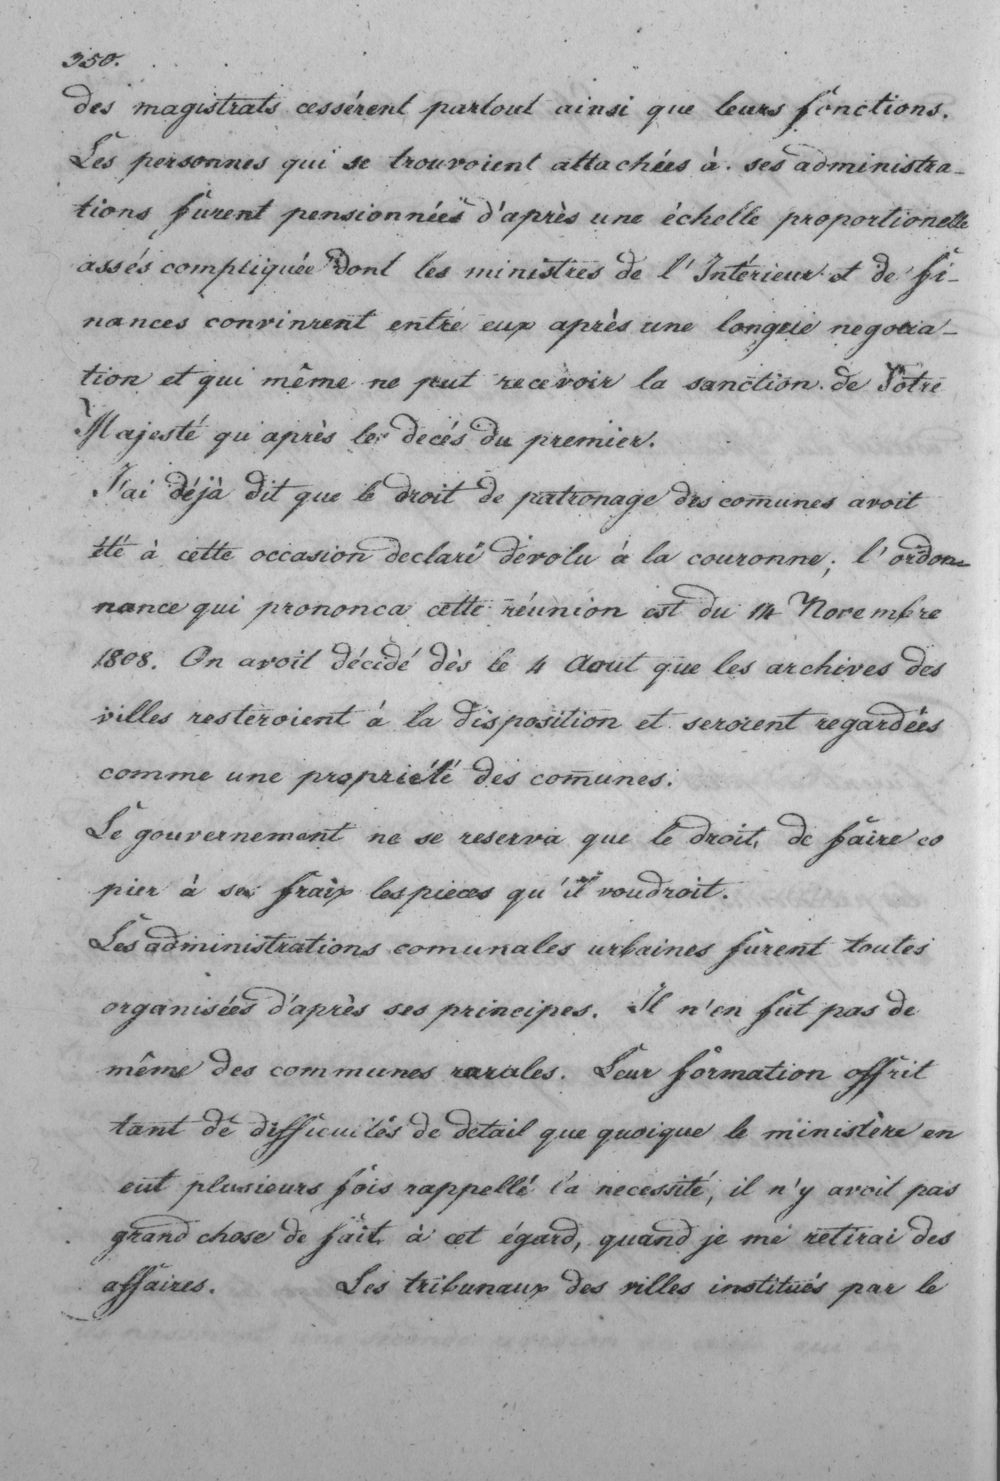 350.
des magistrats cessérent partout ainsi que leurs fonctions.
Les personnes qui se trouvoient attachées à ses administra-
tions furent pensionnées d'après une échelle proportionelle
assés compliquée dont les ministres de l'Intérieur et de fi-
nances convinrent entre eux après une longue negocia-
tion et qui même ne put recevoir la sanction de Votre
Majesté qu'après le decés du premier.
J'ai déjà dit que le droit de patronage des com̄unes avoit
été à cette occasion declaré dévolu à la couronne; l'ordon-
nance qui prononca cette réunion est du 14 Novembre
1808. On avoit décidé dès le 4 Aout que les archives des
villes resteroient à la disposition et seroient regardées
comme une propriété des com̄unes.
Le gouvernement ne se reserva que le droit de faire co
pier à ses fraix les pieces qu'il voudroit.
Les administrations comunales urbaines furent toutes
organisées d'après ses principes. Il n'en fut pas de
même des communes rurales. Leur formation offrit
tant de difficultés de detail que quoique le ministère en
eut plusieurs fois rappellé la necessité, il n'y avoit pas
grand chose de fait à cet égard, quand je me retirai des
affaires. Les tribunaux des villes institués par le